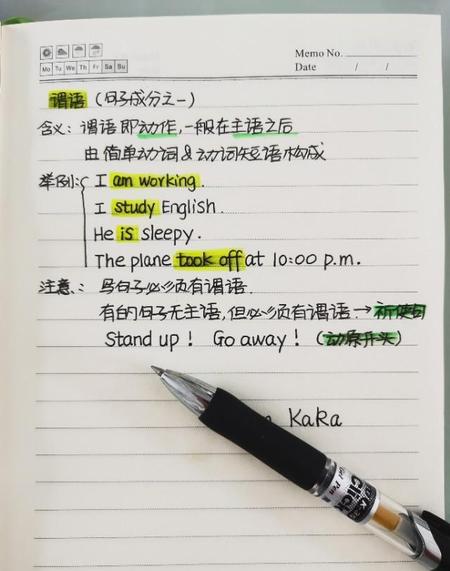 Memo No.
Mo Tu We Th Fr Sa Su
Date / /
谓语（句子成分之一）
含义：谓语即动作，一般在主语之后
由简单动词&动词短语构成
举例：I am working.
I study English.
He is sleepy.
The plane took off at 10:00 p.m.
注意：写句子必须有谓语.
有的句子无主语，但必须有谓语.→祈使句
Stand up！ Go away！（动原开头）
KaKa